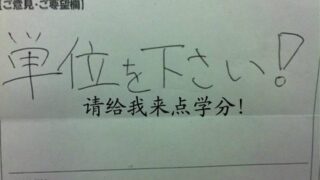 【ご意見・ご要望欄】
単位を下さい!
请给我来点学分!